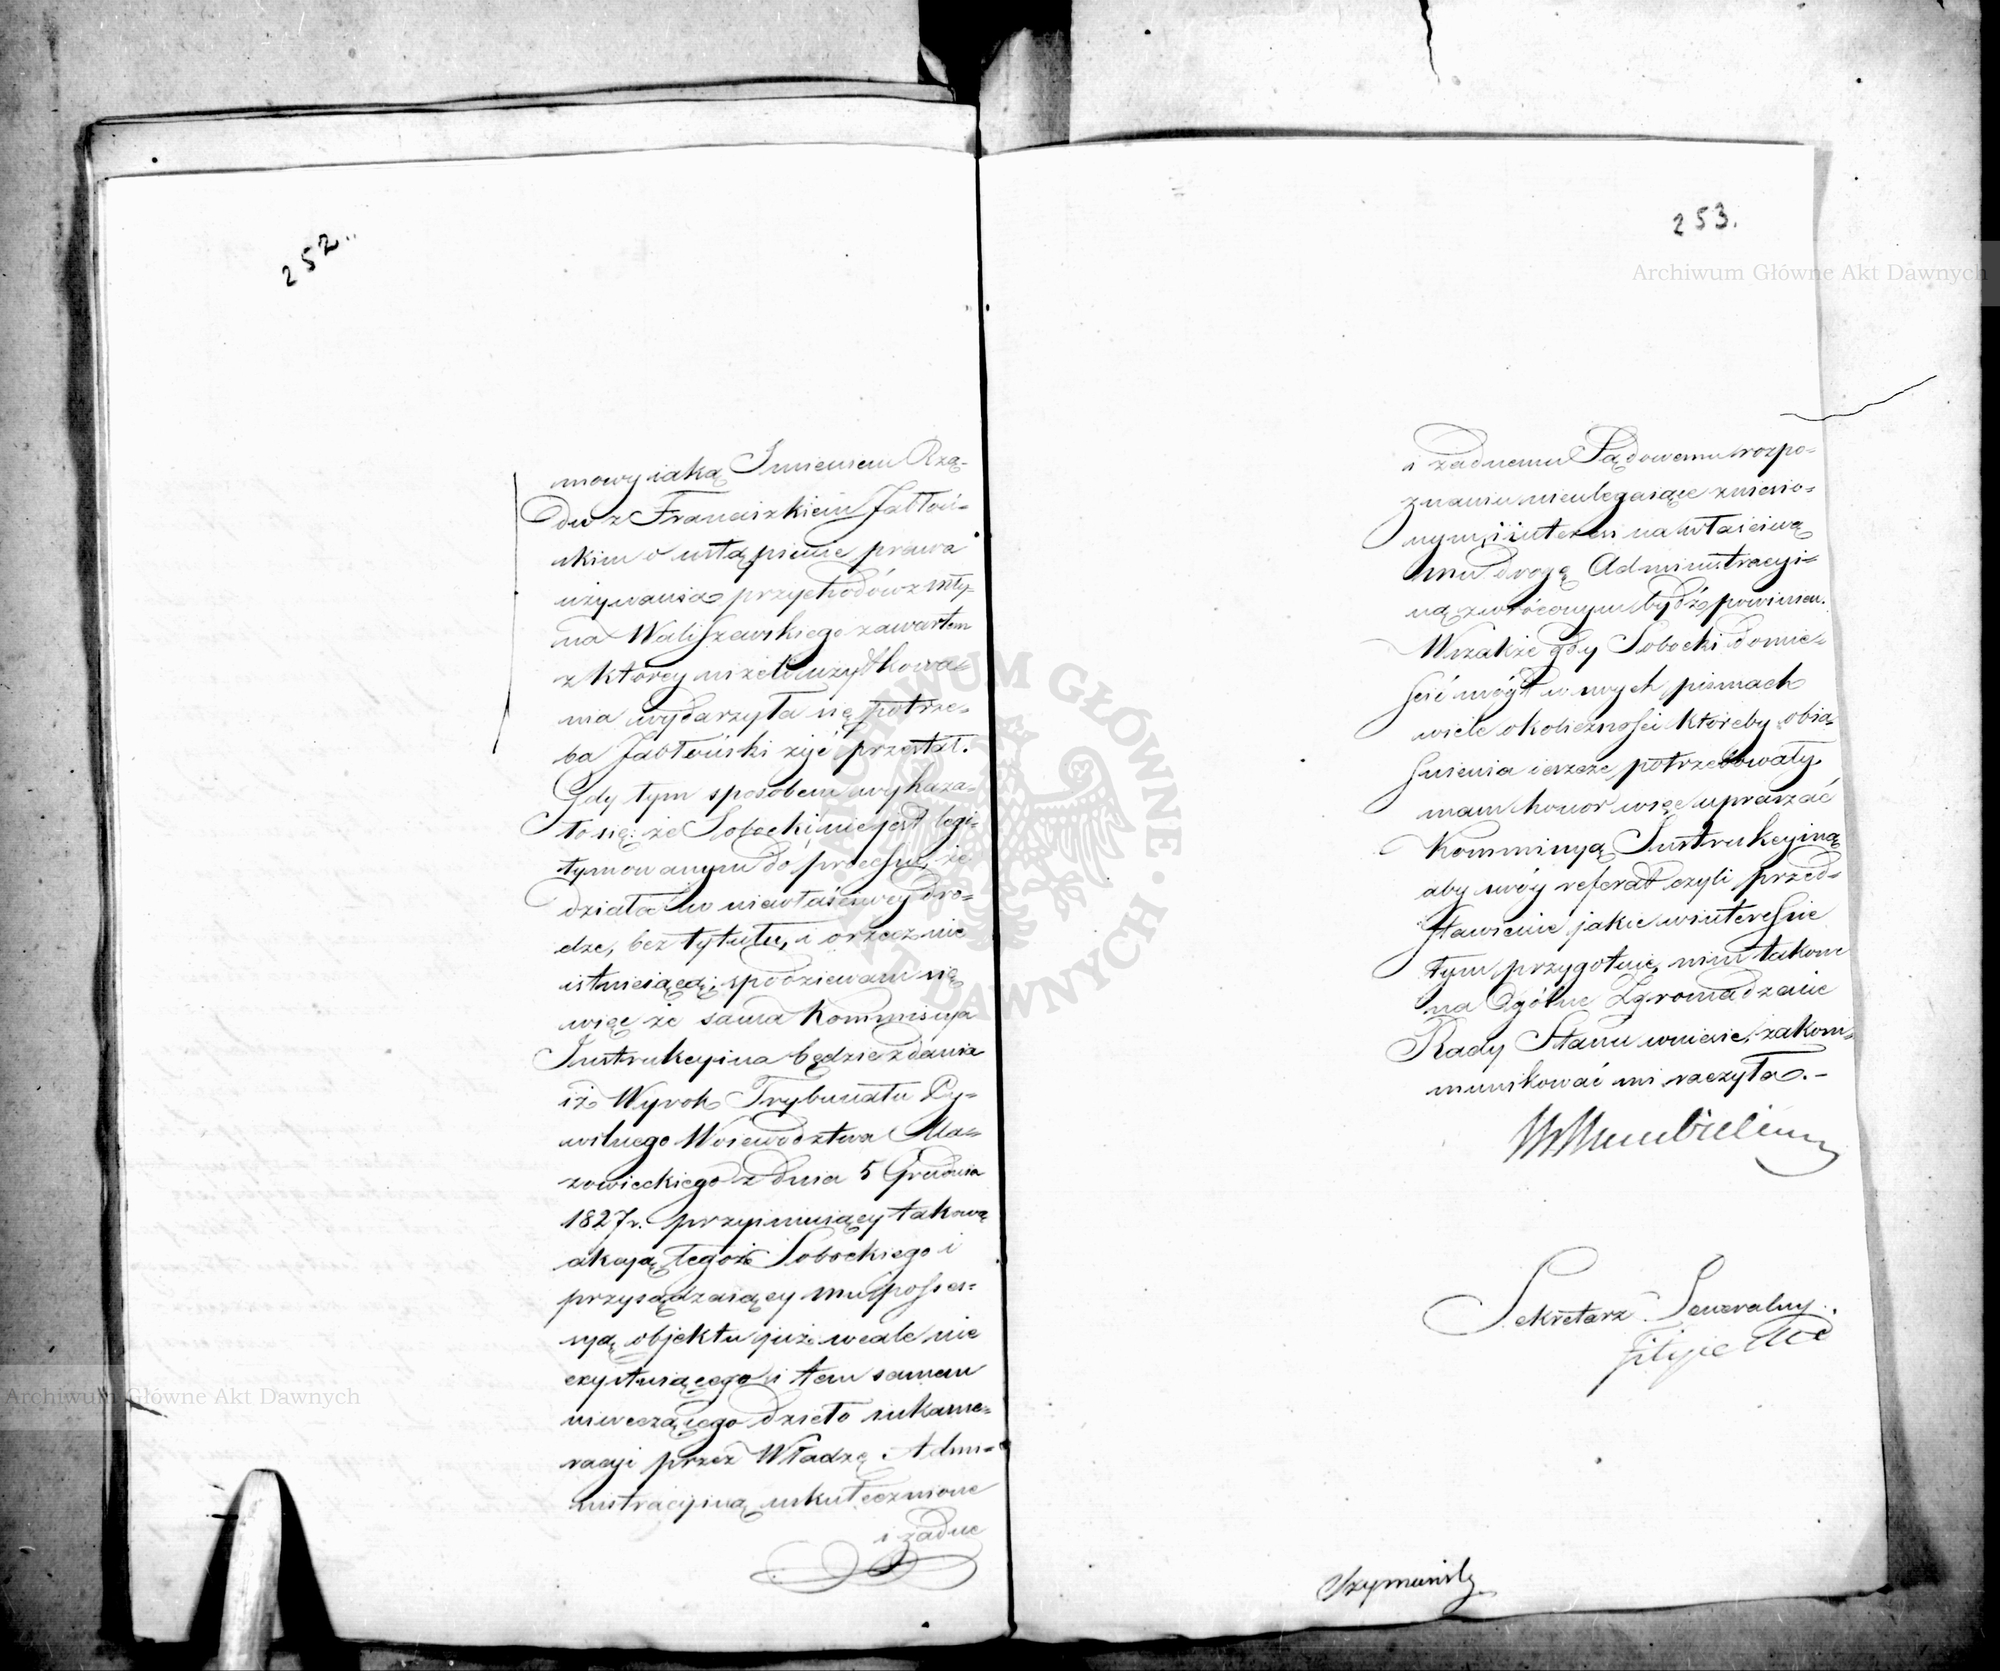 252.
mowy iaką Imieniem Rzą-
du z Franciszkiem Jabłoń-
skim o ustąpienie prawa
używania przychodów z Mły-
na Waliszewskiego zawartem
z ktorey niżeli użytkowa-
nia wydarzyła się potrze-
ba Jabłoński żyć przestał.
Gdy tym sposobem wykaza-
ło się: że Sobocki nie jest legi-
tymowanym do processu, że
działał w niewłaściwey dro-
dze, bez tytułu, i o rzecz nie
istnieiącą; spodziewam się
więc że sama Kommissya
Instrukcyina będzie zdania
iż Wyrok Trybunału Cy-
wilnego Woiewodztwa Ma-
zowieckiego z dnia 5 Grudnia
1827 r. przyimuiący takową
akcyą tegoż Sobockiego i
przysądzaiący mu posses-
syą objektu już wcale nie
exystuiącego i tem samem
niweczącego dzieło inkame-
racyi przez Władzę Admi-
nistracyiną uskutecznione
i żadne
253.
i żadnemu Sądowemu rozpo-
znaniu nieulegaiące zniesio-
nym, i interes na właściwą
mu drogę Administracyi-
ną zwróconym bydź powinien.
Wszakże gdy Sobocki domie-
ścić mógł w swych pismach
wiele okoliczności któreby obia-
śnienia ieszcze potrzebowały
mam honor więc upraszać
Kommissyą Instrukcyiną
aby swóy referat czyli przed-
stawienie jakie w interessie
tym przygotuie, nim takowe
na Ogólne Zgromadzenie
Rady Stanu wniesie, zakom-
munikować mi raczyła.-
Sekretarz Jeneralny.
Archiwum Główne Akt Dawnych
Archiwum Główne Akt Dawnych
ARCHIWUM GŁÓWNE · AKT DAWNYCH ·